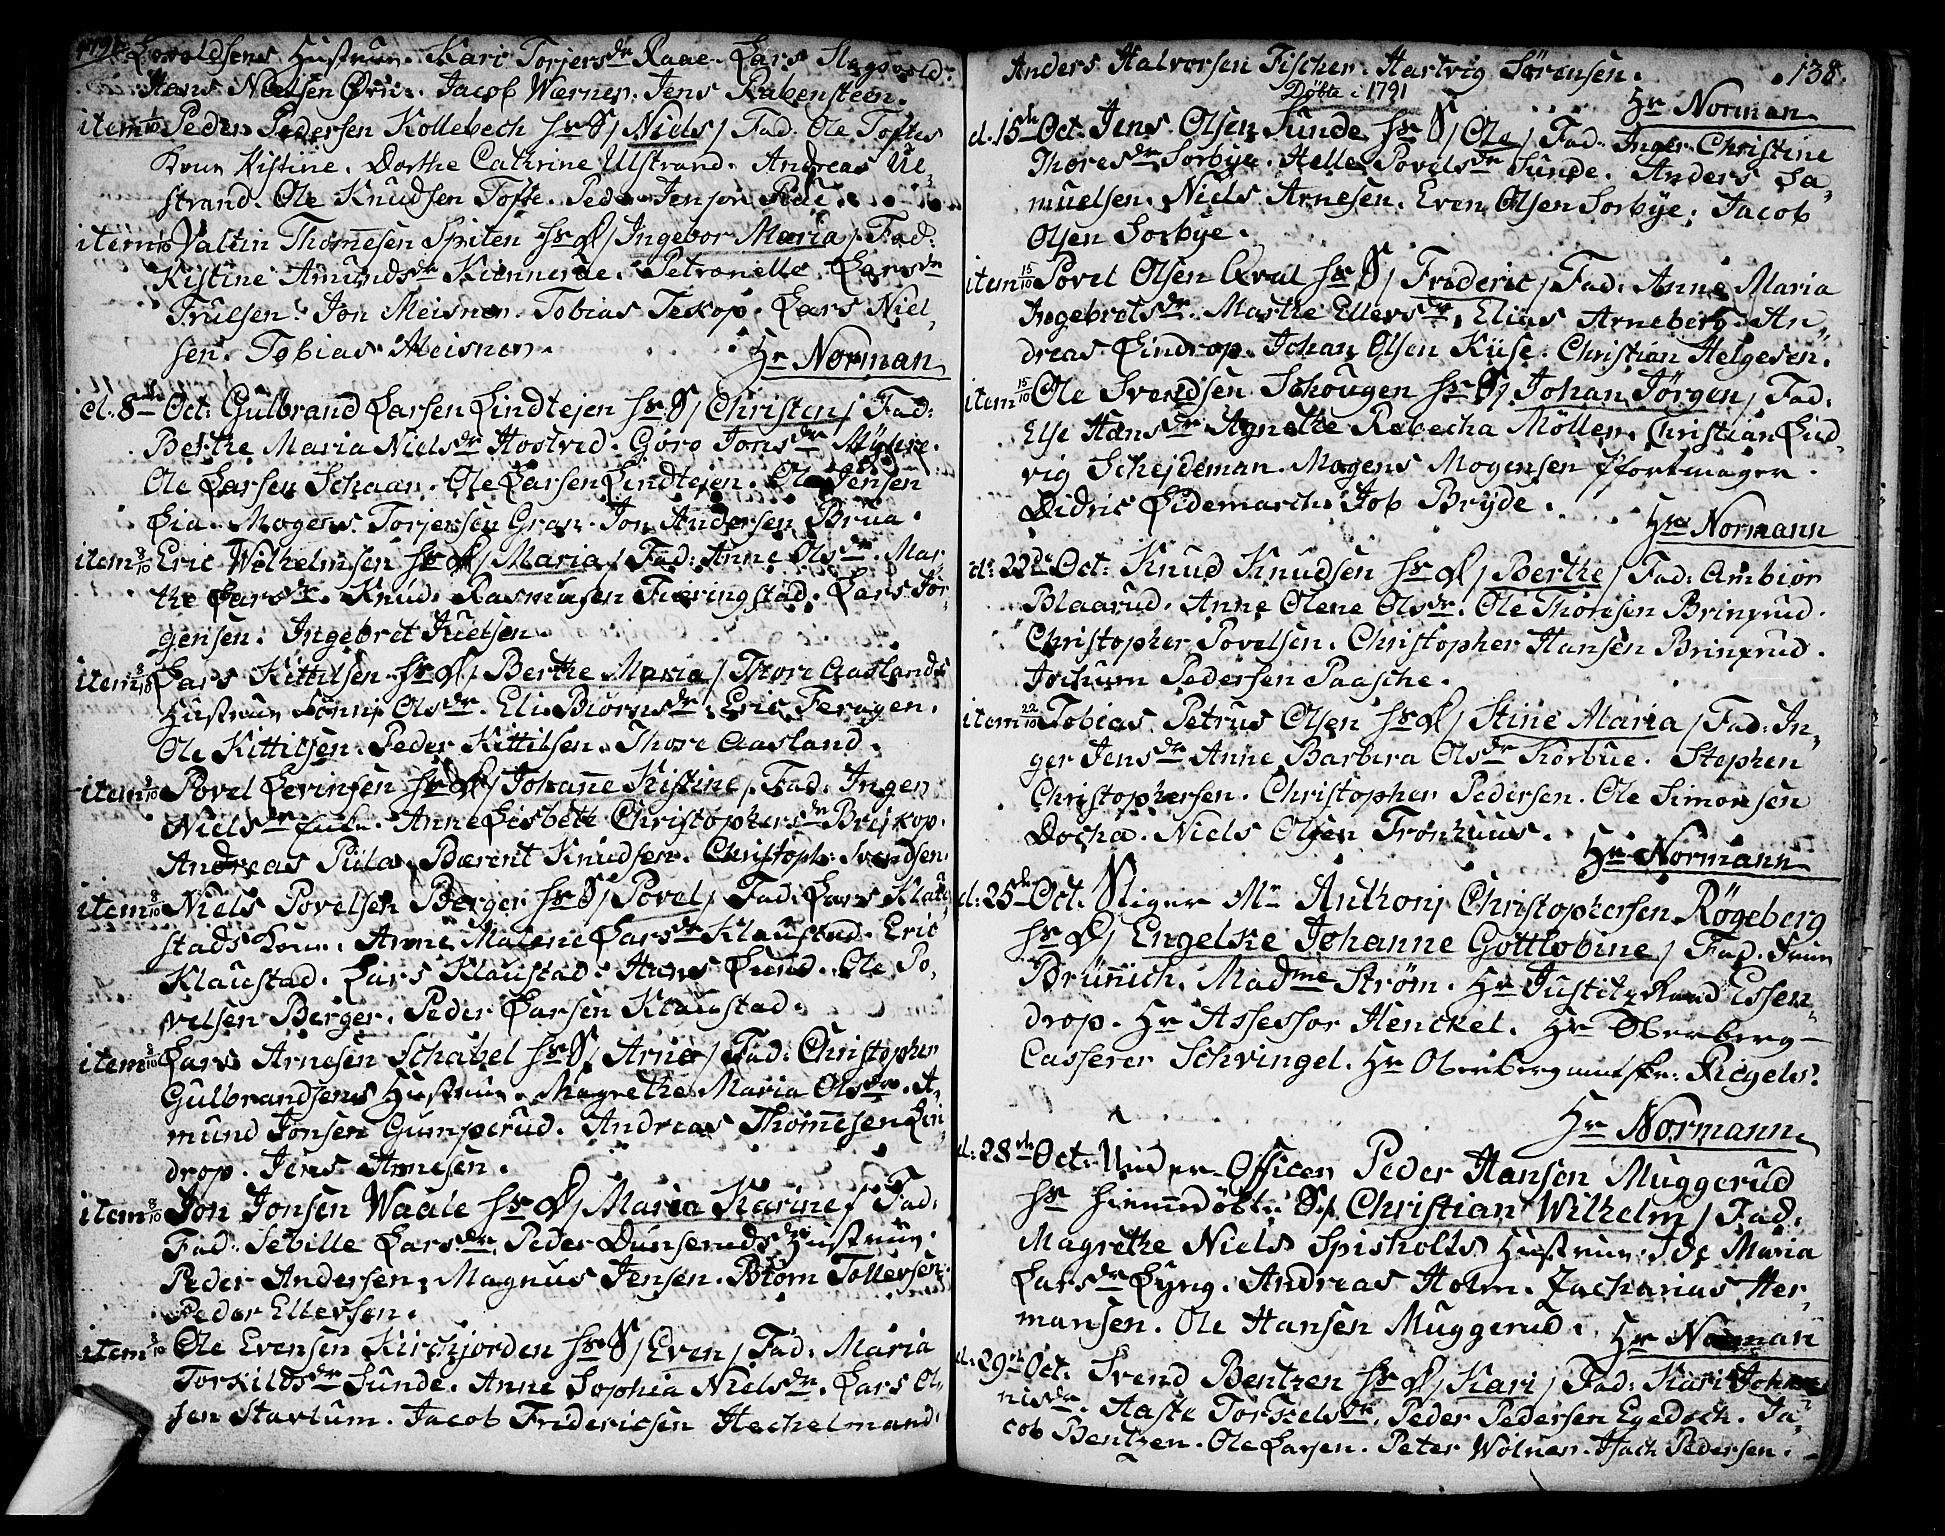 1791. Hustrue. Kari Torjersdr Raae. Lars
Hans Nielsen Ørn. Jacob Werner. Jens Rabensteen.
item Peder Pedersen Kollebech hs S/ Niels/ Fad. Ole Toftes
Kone Kistine. Dorthe Cathrine Ulstrand. Andreas Ul-
strand. Ole Knudsen Tofte. Peder Jensen
item Valtin Thom̄esen Spiten hs D/ Ingebor Maria/ Fad:
Kistine Amundsdr Petronelle Larsdr
Trulsen. Jon Meisner. Tobias Texop. Lars Niel-
sen. Tobias Meisner.
Hr Norman
d. 8de Oct: Gulbrand Larsen Lindtejen hs S/ Christen/ Fad:
Berthe Maria Nielsdr Hostved. Göro Jonsdr Mÿhre.
Ole Larsen Schaar. Ole Larsen Lindtejen. Ole Jensen
Lia. Mogens Torjersen Gran. Jon Andersen Brua.
item 8/10 Eric Wilhelmsen hs D/ Maria/ Fad: Anne Olsdr. Mar-
the Larsdr. Knud Rasmusen Fieringstad. Lars Jör-
gensen. Ingebret Juelsen.
item 8/10 Lars Kittilsen hs D/ Berthe Maria/ Thore Aaslands
Hustrue Olsdr. Eli Biörnsdr. Eric Feragen.
Ole Kittilsen. Peder Kittilsen. Thore Aasland.
item 8/10 Povel Levinsen hs D/ Johan̄e Kistine/ Fad: Inger
Nielsdr Anne Lisbeth Christophersdr Brejkop.
Andreas Piila. Bærent Knudsen. Christoph: Svendsen.
item 8/10 Niels Povelsen Berger hs S/ Povel/ Fad: Lars Klau-
stads Kone. Anne Malene Larsdr Klaustad. Eric
Klaustad. Lars Klaustad. Hans Lund. Ole Po-
velsen Berger. Peder Larsen Klaustad.
item 8/10 Lars Arnesen Schabel hs S/ Arne/ Fad: Christopher
Gulbrandsens Hustrue. Magrethe Maria Olsdr. A-
mund Jonsen Gumperud. Andreas Thom̄esen Lin-
drop. Jens Arnesen.
item 8/10 Jon Jonsen Waale hs D/ Maria Karine/ Fad:
Fad: Sebille Larsdr. Peder Dunseruds Hustrue.
Peder Andersen. Magnus Jensen. Biörn Tollevsen.
Peder Ellevsen.
item 8/10 Ole Evensen Kirchjorden hs S/ Even/ Fad: Maria
Torkildsdr Sunde. Anne Sophia Nielsdr. Lars Ol-
sen Startum. Jacob Friderichsen Hechelmand.
Anders Halvorsen Fischer. Hartvig Sörensen.
138.
Döbte i 1791
Hr Norman
d. 15de Oct. Jens Olsen Sunde hs S/ Ole/ Fad: Inger Christine
Thoresdr Sorbye. Helle Povelsdr Sunde. Anders Sa-
muelsen. Niels Arnesen. Even Olsen Sorbye. Jacob
Olsen Sorbye.
item 15/10 Povel Olsen Qval hs S/ Frideric/ Fad: Anne Maria
Ingebretsdr. Marthe Ellevsdr. Elias Arneberg. An-
dreas Lindrop. Johan Olsen Kiise. Christian Helgesen.
item 15/10 Ole Svendsen Schougen hs S/ Johan Jörgen/ Fad:
Else Hansdr. Agnethe Rebecha Möller. Christian Lud-
vig Schejdeman. Mogens Mogensen Pfortmager.
Didric Lidemarch. Job Brÿde.
Hr Normann
d. 22de Oct: Knud Knudsen hs D/ Berthe/ Fad: Ambiör
Blaarud. Anne Olene Olsdr. Ole Thoresen Brinxrud.
Christopher Povelsen. Christopher Hansen Brinxrud.
Jochum Pedersen Paasche.
item 22/10 Tobias Petrus Olsen hs D/ Stine Maria/ Fad: In-
ger Jensdr Anne Barbara Olsdr Korbüe. Stephen
Christophersen. Christopher Pedersen. Ole Simonsen
Docha. Niels Olsen Tronhuus.
Hr Normann
d. 25de Oct. Stiger Mr Anthonj Christophersen Rögeberg
hs D/ Engelske Johanne Gottlobine/ Fad. Frue
Brün̄ich. Madme Ström. Hr Justitzraad Essen-
drop. Hr Assessor Henckel. Hr Oberberg-
Casserer Schvingel. Hr Oberbergamtskr: Riegels.
Hr Normann
d: 28de Oct: Under-Officer Peder Hansen Muggerud
hs hiem̄edöbt S/ Christian Wilhelm/ Fad:
Magrethe Niels Spisholts Hustrue. Ide Maria
Larsdr Lÿng. Andreas Holm. Zacharias Her-
mansen. Ole Hansen Muggerud.
Hr Norman
d: 29de Oct. Svend Bentzen hs D/ Kari/ Fad: Kari Johan-
nisdr. Aaste Torkelsdr. Peder Pedersen Egedoch. Ja-
cob Bentzen. Ole Larsen. Peter Wölner. Isach Pedersen.